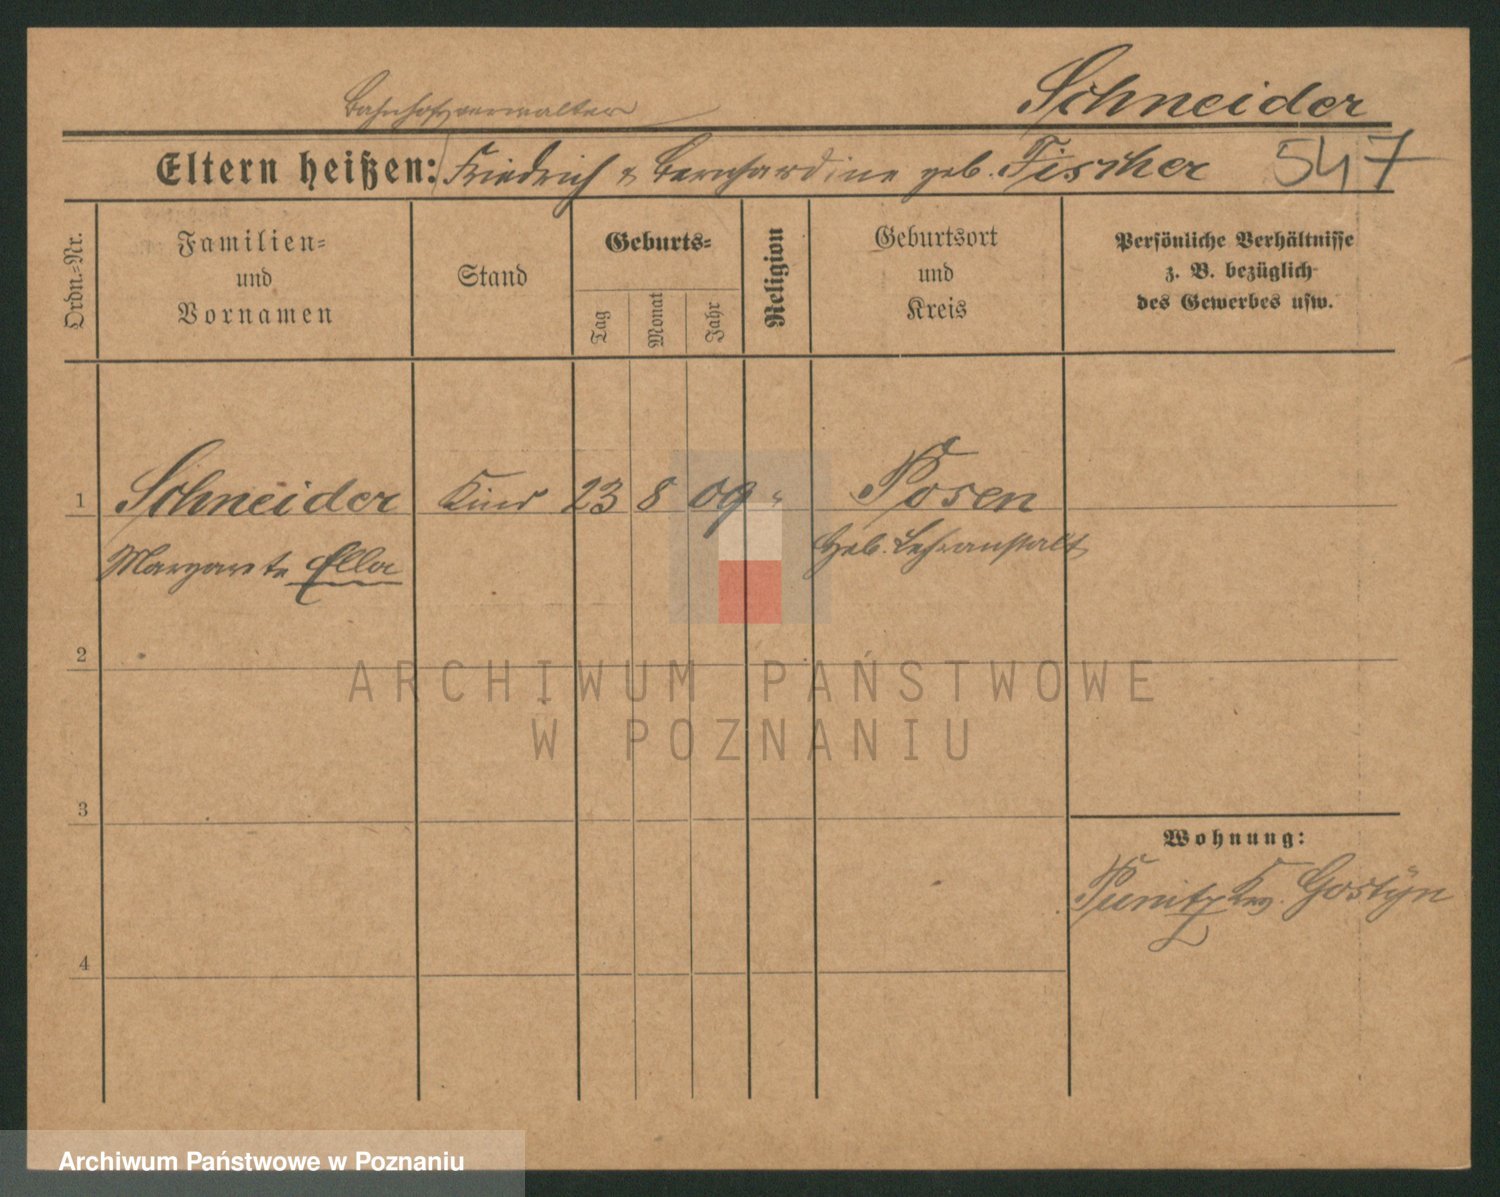 Schneider
Bahnhofsverwalter
Eltern heißen: Friedrich & Bernhardine geb. Fischer 547
Ordn.-Nr.
Familien-
und
Vornamen
Stand
Geburts-
Tag
Monat
Jahr
Religion
Geburtsort
und
Kreis
Persönliche Verhältnisse
z. B. bezüglich
des Gewerbes usw.
1 Schneider Kind 23 8 09 " Posen
Margarete Ella
Heb. Lehranstalt
2
3
4
Wohnung:
Punitz Krs. Gostÿn
ARCHIWUM PAŃSTWOWE
W POZNANIU
Archiwum Państwowe w Poznaniu